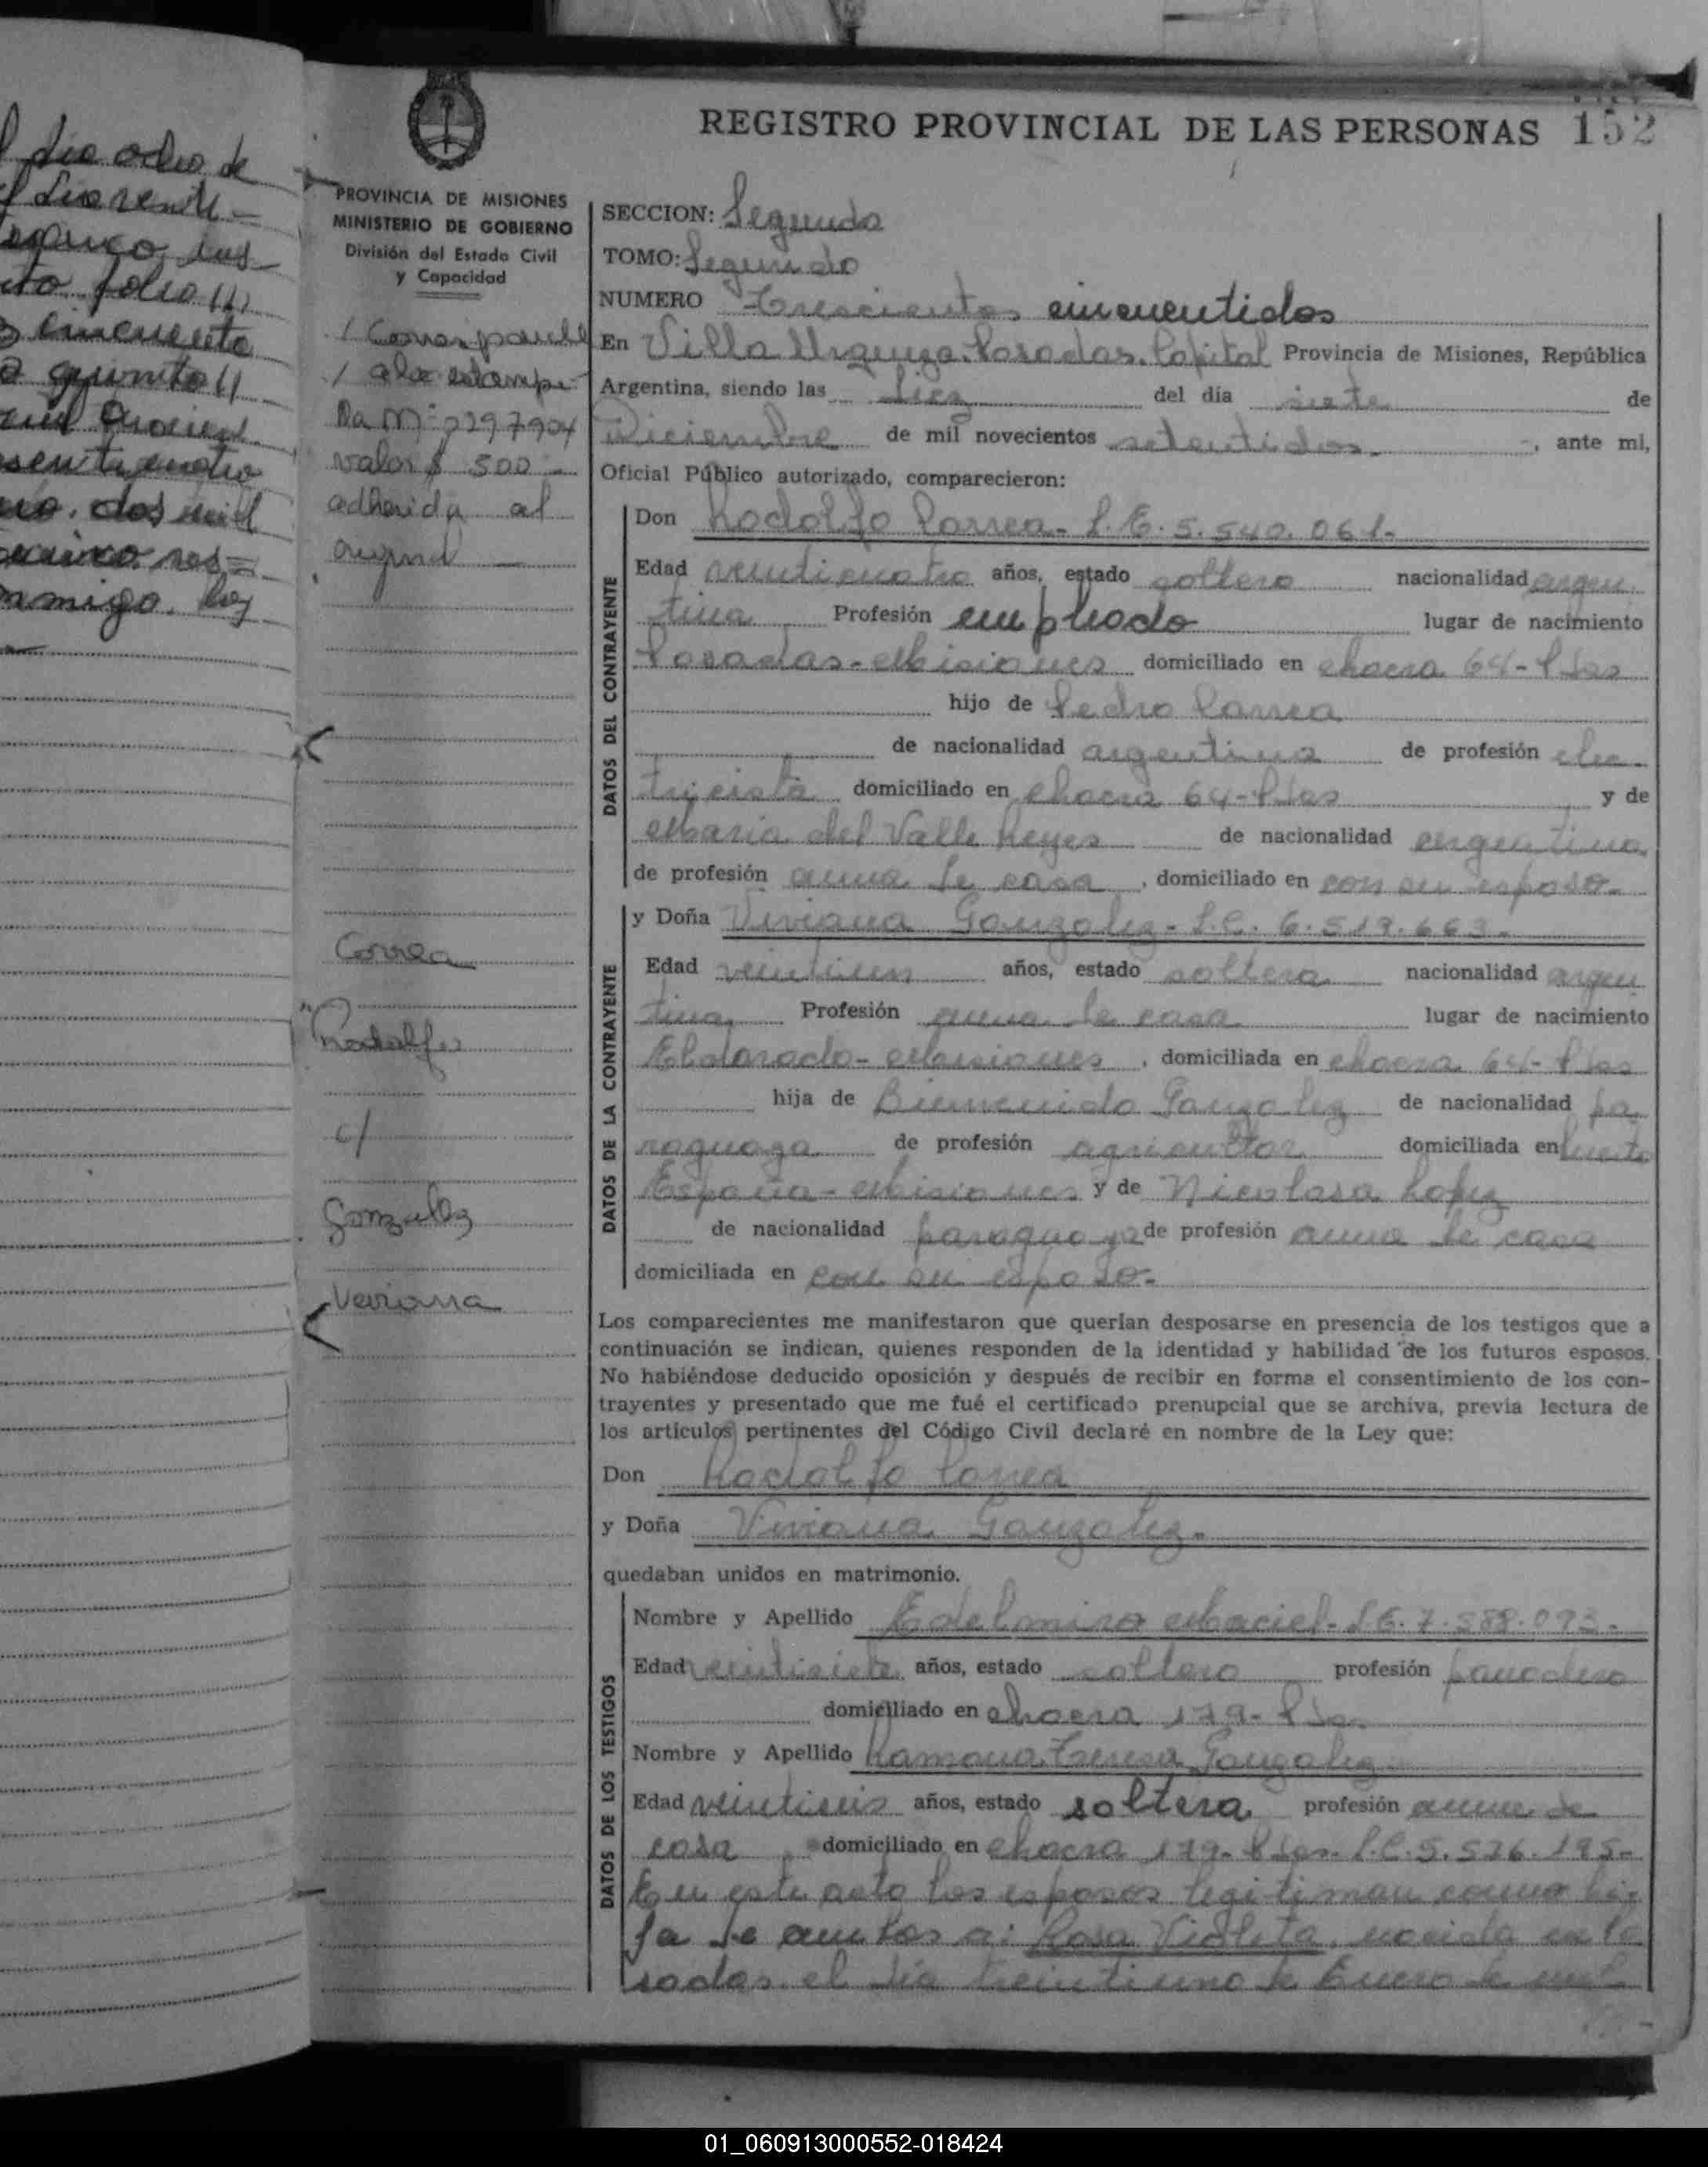 l dia ocho de
l dia veinti=
cincuenta
REGISTRO PROVINCIAL DE LAS PERSONAS 152
PROVINCIA DE MISIONES
MINISTERIO DE GOBIERNO
División del Estado Civil
y Capacidad
/ Corresponde
/ a la estampi-
lla Nº 2297904
valor $ 500 -
adherida al
original -
Correa
Rodolfo
c/
Gonzalez
Viviana
SECCION: Segunda
TOMO: Segundo
NUMERO Trescientos cincuentidos
En Villa Urquiza. Posadas. Capital Provincia de Misiones, República
Argentina, siendo las diez del día siete de
Diciembre de mil novecientos setentidos.-, ante mi,
Oficial Público autorizado, comparecieron:
DATOS DEL CONTRAYENTE
Don Rodolfo Correa- L.E. 5.540.061.-
Edad veinticuatro años, estado soltero nacionalidad argen
tina Profesión empleado lugar de nacimiento
Posadas-Misiones domiciliado en chacra 64-Pdas
hijo de Pedro Correa
de nacionalidad argentina de profesión elec-
tricista domiciliado en chacra 64-Pdas y de
Maria del Valle Reyes de nacionalidad argentina
de profesión ama de casa, domiciliado en con su esposo.-
DATOS DE LA CONTRAYENTE
y Doña Viviana Gonzalez- L.C. 6.519.663.-
Edad veintiun años, estado soltera nacionalidad argen
tina Profesión ama de casa lugar de nacimiento
Eldorado-Misiones, domiciliada en chacra 64-Pdas
hija de Bienvenido Gonzalez de nacionalidad pa
raguaya de profesión agricultor domiciliada en Puerto
España-Misiones y de Nicolasa Lopez
de nacionalidad paraguaya de profesión ama de casa
domiciliada en con su esposo.-
Los comparecientes me manifestaron que querían desposarse en presencia de los testigos que a
continuación se indican, quienes responden de la identidad y habilidad de los futuros esposos.
No habiéndose deducido oposición y después de recibir en forma el consentimiento de los con-
trayentes y presentado que me fué el certificado prenupcial que se archiva, previa lectura de
los artículos pertinentes del Código Civil declaré en nombre de la Ley que:
Don Rodolfo Correa
y Doña Viviana Gonzalez.-
quedaban unidos en matrimonio.
DATOS DE LOS TESTIGOS
Nombre y Apellido Edelmiro Maciel- L.E. 7.588.093.-
Edad veintisiete años, estado soltero profesión panadero
domiciliado en chacra 179-Pdas
Nombre y Apellido Ramona Teresa Gonzalez
Edad veintiseis años, estado soltera profesión ama de
casa domiciliado en chacra 179-Pdas. L.C. 5.526.195.-
En este acto los esposos legitiman como hi-
ja de ambos a: Rosa Violeta, nacida en Po
sadas, el día treintiuno de Enero de mil
01_060913000552-018424